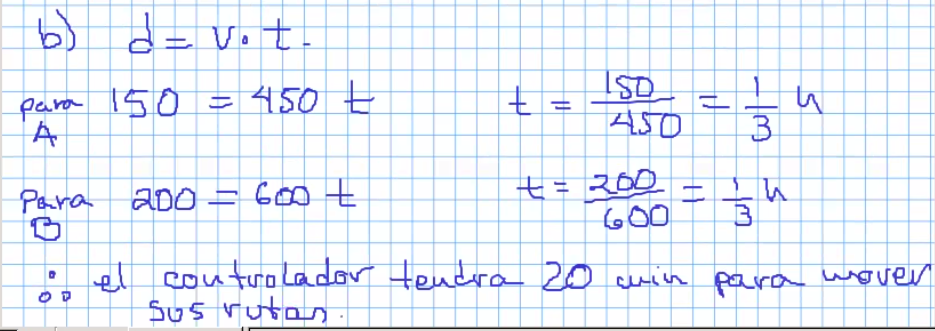 b) d = v. t.
para A 150 = 450 t t = 150/450 = 1/3 h
Para B 200 = 600 t t = 200/600 = 1/3 h
∴ el controlador tendra 20 min para mover
sus rutas.